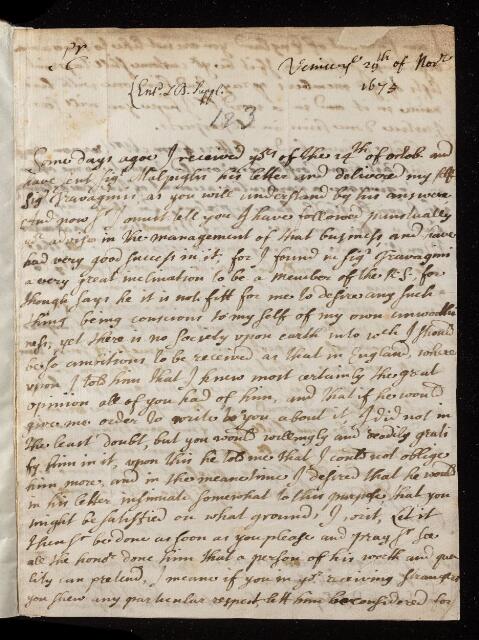 Venice yᵉ 29th of Novr
1675
Entd L.B. Suppl.
183
Some days agoe I received yrs of the 14th of octob. and
have Sigr Malpighi his letter and delivered my self
Sigr Travagini as you will understand by his answere
And now Sr I must tell you I have followed punctually
yr advise in the management of that business and have
had very good success in it, for I found in Sigr Travagini
a very great inclination to be a member of the R.S. for
though says he it is not fitt for me to desire any such
thing being conscious to my self of my own unworthi
ness, yet there is no Society upon earth into wch I should
be so ambitious to be received as that in England, where
upon I told him that I knew most certainly the great
opinion all of you had of him, and that if he would
give me order to write to you about it, I did not in
the least doubt, but you would willingly and readily grati
fy him in it, upon this he told me that I could not oblige
him more, and in the meane time I desired that he would
in his letter insinuate somewhat to this purpose, that you
might be satisfied on what ground I writ, Let it
then Sr be done as soon as you please and pray Sr let
all the honor done him that a person of his worth and qua
lity can pretend, I meane if you in yr receiving strangers
you shew any particular respect, lett him be considered for